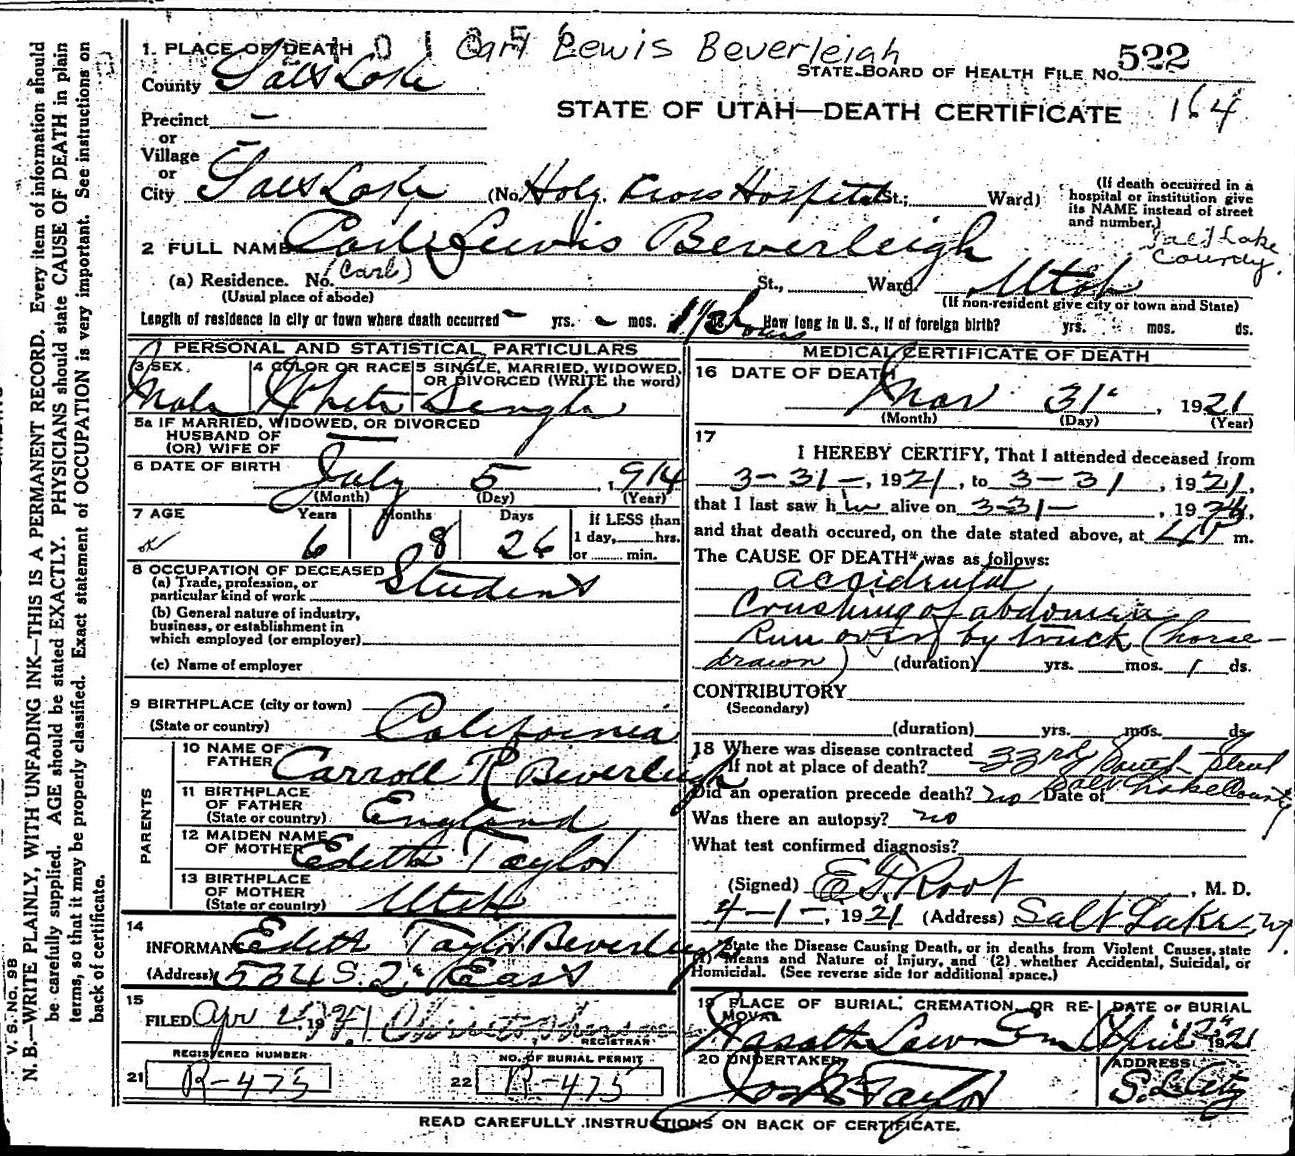 1. PLACE OF DEATH Carl Lewis Beverleigh
STATE BOARD OF HEALTH FILE NO. 522
County Salt Lake
STATE OF UTAH—DEATH CERTIFICATE 164
Precinct —
or
Village —
or
City Salt Lake (No. Holy Cross Hospital St.; Ward)
(If death occurred in a
hospital or institution give
its NAME instead of street
and number.)
2 FULL NAME Carl Lewis Beverleigh
Salt Lake
County.
(a) Residence. No. (Carl) St., Ward. Utah
(Usual place of abode) (If non-resident give city or town and State)
Length of residence in city or town where death occurred - yrs. - mos. 1 1/2 hours How long in U. S., if of foreign birth? yrs. mos. ds.
PERSONAL AND STATISTICAL PARTICULARS
3 SEX 4 COLOR OR RACE 5 SINGLE, MARRIED, WIDOWED,
OR DIVORCED (WRITE the word)
Male White Single
5a IF MARRIED, WIDOWED, OR DIVORCED
HUSBAND OF
(OR) WIFE OF —
6 DATE OF BIRTH July 5, 1914
(Month) (Day) (Year)
7 AGE Years Months Days If LESS than
1 day, hrs.
6 8 26 or min.
8 OCCUPATION OF DECEASED
(a) Trade, profession, or
particular kind of work Student
(b) General nature of industry,
business, or establishment in
which employed (or employer)
(c) Name of employer
9 BIRTHPLACE (city or town)
(State or country) California
PARENTS
10 NAME OF
FATHER Carroll R Beverleigh
11 BIRTHPLACE
OF FATHER
(State or country) England
12 MAIDEN NAME
OF MOTHER Edith Taylor
13 BIRTHPLACE
OF MOTHER
(State or country) Utah
14
INFORMANT Edith Taylor Beverleigh
(Address) 534 S. 2nd East
15
FILED Apr 2, 1921
REGISTRAR
REGISTERED NUMBER NO. OF BURIAL PERMIT
21 R-475 22 R-475
MEDICAL CERTIFICATE OF DEATH
16 DATE OF DEATH
Mar 31, 1921
(Month) (Day) (Year)
17
I HEREBY CERTIFY, That I attended deceased from
3-31-, 1921, to 3-31, 1921,
that I last saw him alive on 3-31-, 1921,
and that death occured, on the date stated above, at m.
The CAUSE OF DEATH* was as follows:
accidental
Crushing of abdomen
Run over by truck (horse-
drawn) (duration) yrs. mos. 1 ds.
CONTRIBUTORY
(Secondary)
(duration) yrs. mos. ds.
18 Where was disease contracted
If not at place of death? 33rd South Street
Salt Lake County
Did an operation precede death? no Date of
Was there an autopsy? no
What test confirmed diagnosis?
(Signed) E. D. Root, M. D.
4-1-, 1921 (Address) Salt Lake, Ut.
*State the Disease Causing Death, or in deaths from Violent Causes, state
(1) Means and Nature of Injury, and (2) whether Accidental, Suicidal, or
Homicidal. (See reverse side for additional space.)
19 PLACE OF BURIAL, CREMATION, OR RE-
MOVAL DATE OF BURIAL
Wasatch Lawn April 2nd 1921
20 UNDERTAKER ADDRESS
Jos Taylor S. L. City
READ CAREFULLY INSTRUCTIONS ON BACK OF CERTIFICATE.
V. S. No. 98
N. B.—WRITE PLAINLY, WITH UNFADING INK—THIS IS A PERMANENT RECORD. Every item of information should
be carefully supplied. AGE should be stated EXACTLY. PHYSICIANS should state CAUSE OF DEATH in plain
terms, so that it may be properly classified. Exact statement of OCCUPATION is very important. See instructions on
back of certificate.